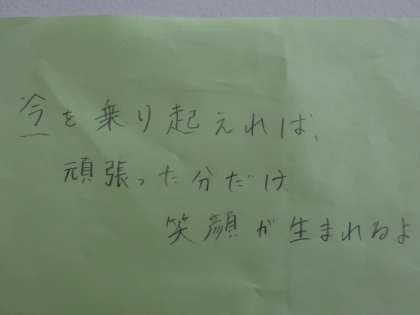 今を乗り起えれば、
頑張った分だけ
笑顔が生まれるよ